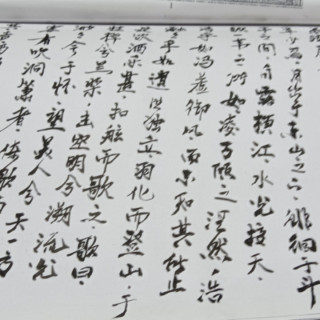 章少焉月出于東山之上徘徊于斗
牛之間白露横江水光接天
縱一葦之所如凌万頃之茫然浩
浩乎如馮虚御風而不知其所止
飄乎如遺世獨立羽化而登仙于
是飲酒樂甚扣舷而歌之歌曰
桂棹兮蘭槳击空明兮溯流光
渺兮予懷望美人兮天一方
客有吹洞簫者倚歌而